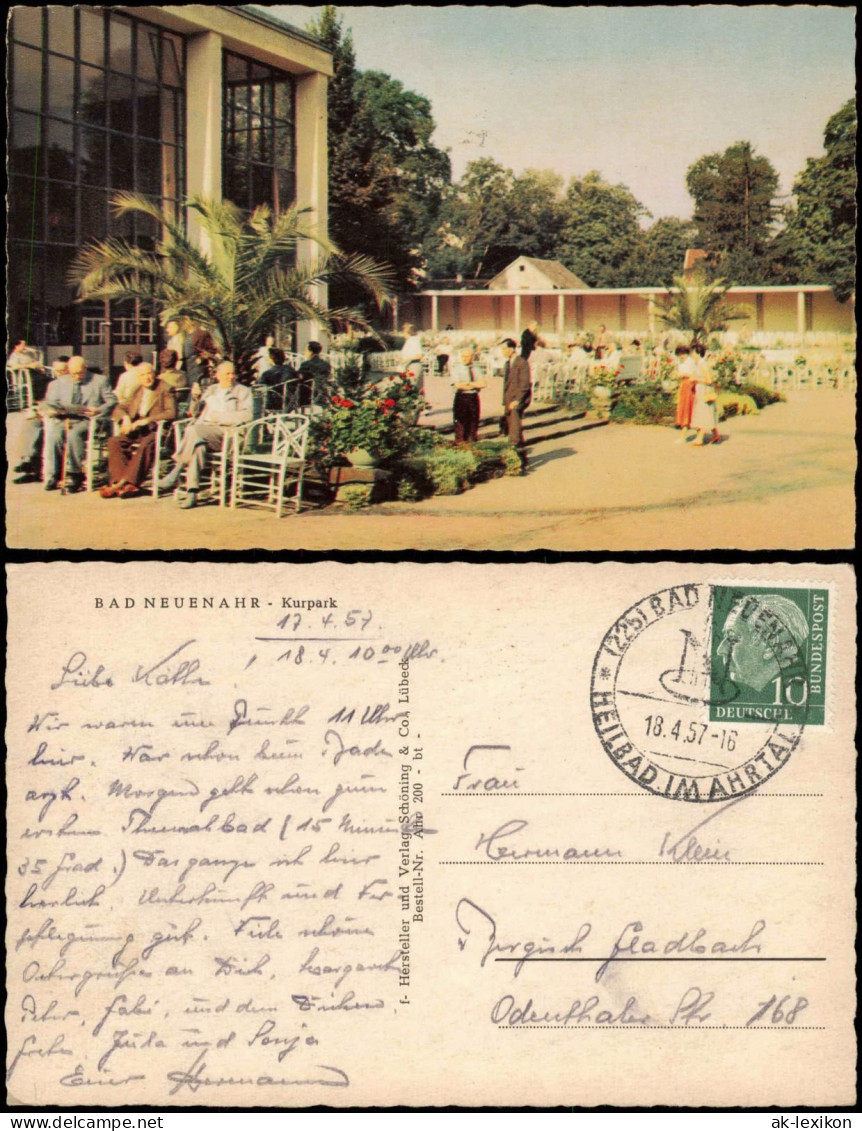 BAD NEUENAHR - Kurpark
17.4.57.
18.4. 10 00 Uhr.
Liebe Käthe
Wir waren um Punkt 11 Uhr
hier. War schon beim Bade
arzt. Morgen geht schon zum
ersten Thermalbad (15 Minuten
35 Grad.) Das ganze ist hier
herrlich. Unterkunft und Ver
pflegung gut. Viele schöne
Ostergrüße an Dich, Margaret
Peter, Gabi, und den
Juda und Sonja
Euer Hermann
f- Hersteller und Verlag Schöning & Co., Lübeck
Bestell-Nr. Ahr 200 - bt -
(22b) BAD NEUENAHR
18.4.57-16
HEILBAD IM AHRTAL
10
DEUTSCHE
BUNDESPOST
Frau
Hermann Klein
Bergisch Gladbach
Odenthaler Str. 168
ak-lexikon